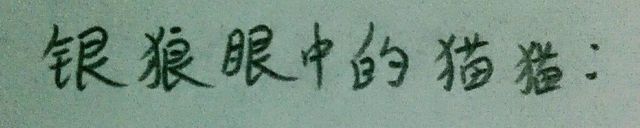 银狼眼中的猫猫：